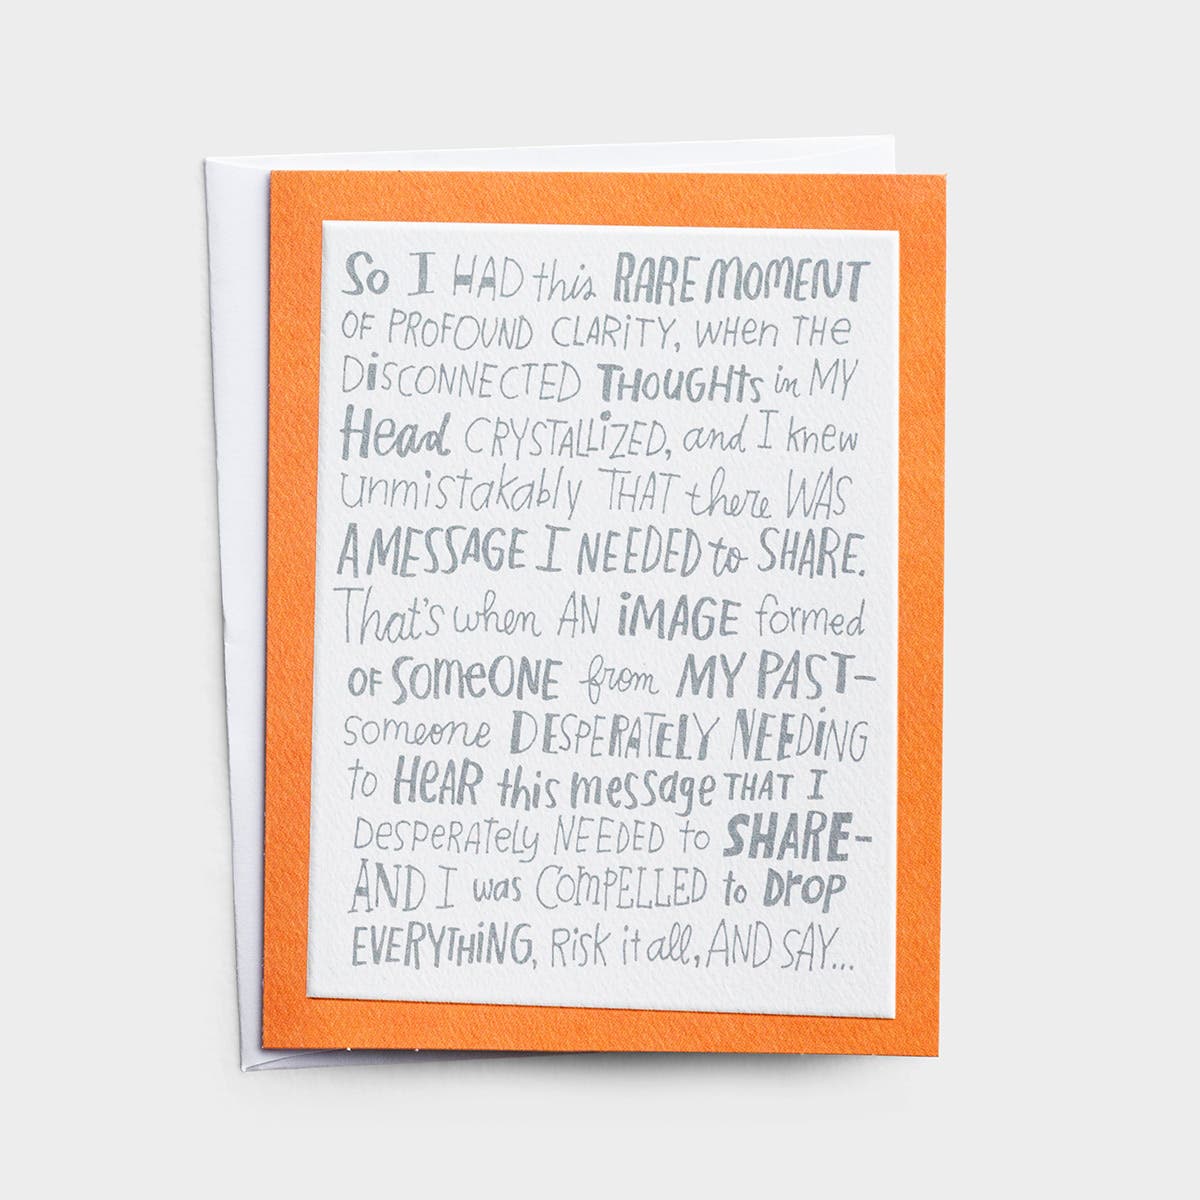 So I HAD this RARE MOMENT
OF PROFOUND CLARITY, WHEN THE
DISCONNECTED THOUGHTS in MY
Head CRYSTALLIZED, and I knew
unmistakably THAT there WAS
A MESSAGE I NEEDED to SHARE.
That's when AN IMAGE formed
OF SOMEONE from MY PAST—
someone DESPERATELY NEEDING
to HEAR this message THAT I
DESPERATELY NEEDED to SHARE—
AND I was COMPELLED to DROP
EVERYTHING, Risk it all, AND SAY...